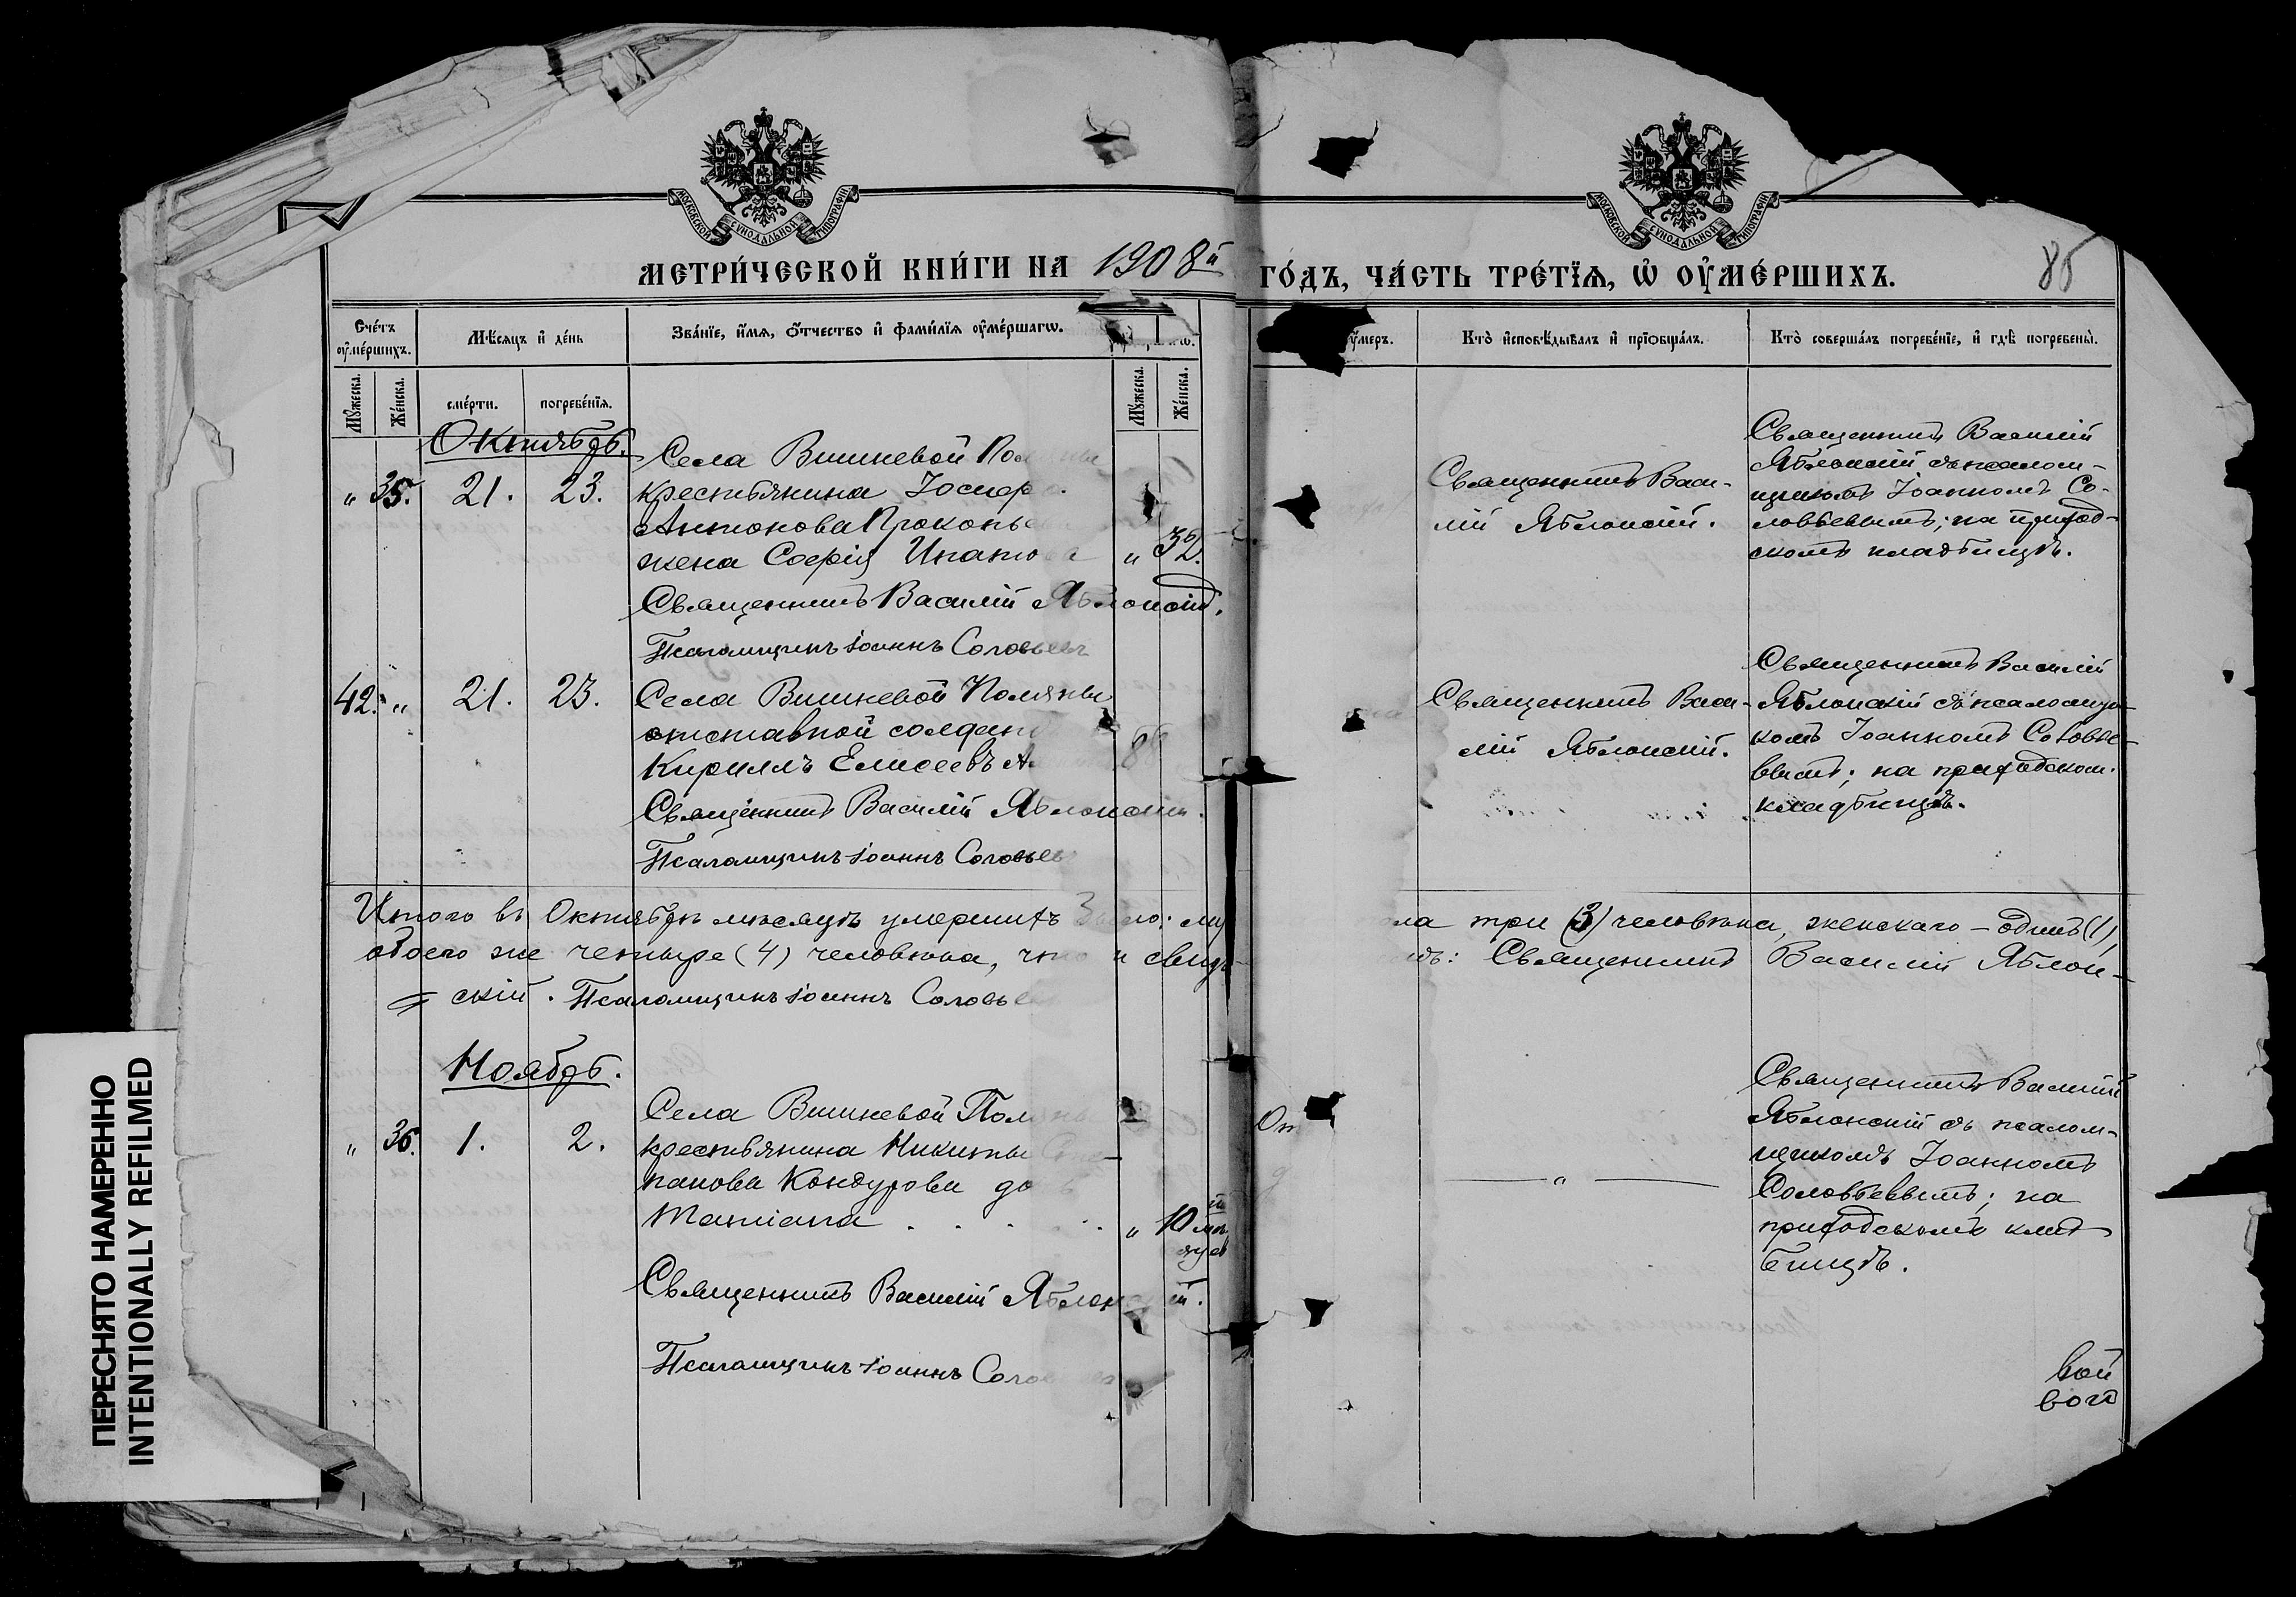 МОСКОВСКОЙ СУНОДАЛЬНОЙ ТИПОГРАФІИ
МОСКОВСКОЙ СУНОДАЛЬНОЙ ТИПОГРАФІИ
МЕТРИ́ЧЕСКОЙ КНИ́ГИ НА 1908й ГО́ДЪ, ЧА́СТЬ ТРЕ́ТЇѦ, Ѡ҆ ОУ҆МЕ́РШИХЪ.
85
Сче́тъ оу҆ме́ршихъ.
Мѣ́сѧцъ и҆ де́нь
Зва́нїе, и҆́мѧ, ѻ҆́тчество и҆ фами́лїѧ оу҆ме́ршагѡ.
оу҆́меръ.
Кто̀ и҆сповѣ́дывалъ и҆ прїобща́лъ.
Кто̀ соверша́лъ погребе́нїе, и҆ гдѣ̀ погребены̀.
Мꙋ́жеска.
Же́нска.
сме́рти.
погребе́нїѧ.
Мꙋ́жеска.
Же́нска.
Октябрь.
" 35. 21. 23.
Села Вишневой
крестьянина Іосифа
Антонова
жена Софія " 32.
Священникъ Василій Яблонскій.
Псаломщикъ Іоаннъ Соловьевъ
Священникъ Васи-
лій Яблонскій.
Священникъ Василій
Яблонскій съ псалом-
щикомъ Іоанномъ Со-
ловьевымъ; на приход-
скомъ кладбищѣ.
42. " 21. 23.
Села Вишневой Поляны
отставной солдатъ
Кириллъ Елисеевъ
Священникъ Василій Яблонскій.
Псаломщикъ Іоаннъ Соловьев
Священникъ Васи-
лій Яблонскій.
Священникъ Василій
Яблонскій съ псаломщи-
комъ Іоанномъ Соловье-
вымъ; на приходском.
кладбищѣ.
Итого въ Октябрѣ мѣсяцѣ умершихъ было: му ла три (3) человѣка, женскаго – одинъ (1),
обоего же четыре (4) человѣка, что и свидѣ Священникъ Василій Яблон-
скій. Псаломщикъ Іоаннъ Соловье
Ноябрь.
" 36. 1. 2.
Села Вишневой Поляны
крестьянина Никиты Сте-
панова Кондурова дочь
Татіана . . . . " 10 мѣ-
сяцев
Священникъ Василій Яблонскій.
Псаломщикъ Іоаннъ Соло
От
— " —
Священникъ Василій
Яблонскій съ псалом-
щикомъ Іоанномъ
Соловьевымъ; на
приходскомъ клад-
бищѣ.
вой
ПЕРЕСНЯТО НАМЕРЕННО
INTENTIONALLY REFILMED